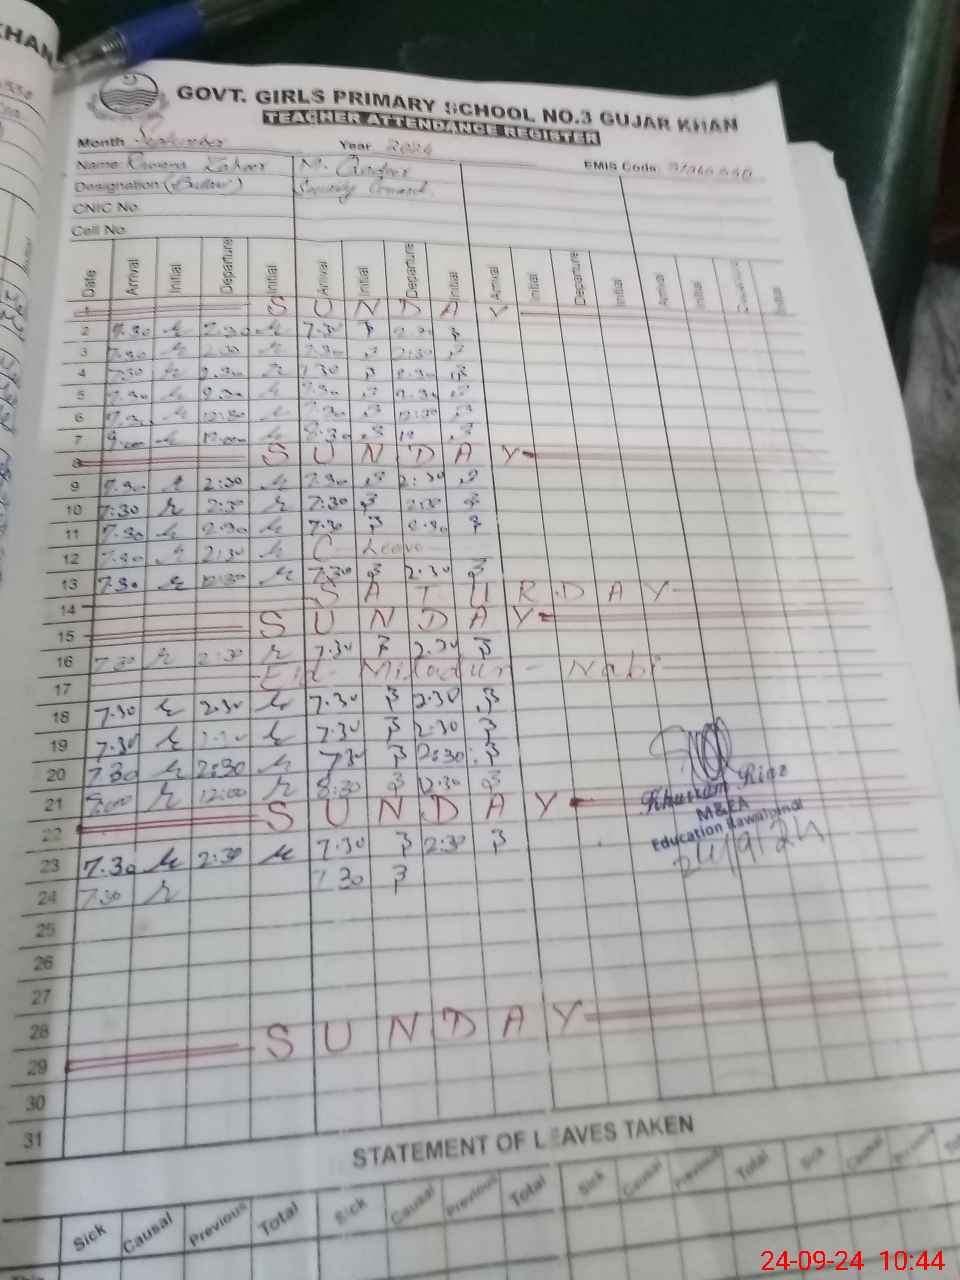 KHAN
GOVT. GIRLS PRIMARY SCHOOL NO.3 GUJAR KHAN
TEACHER ATTENDANCE REGISTER
Month September Year 2024
Name Zaheer M. EMIS Code
Designation (Butler) Security Guard
CNIC No.
Cell No.
Date Arrival Initial Departure Initial Arrival Initial Departure Initial Arrival Initial Departure Initial Arrival Initial Departure Initial
1 SUNDAY
2 7.30 2.30 7.30 2.30
3 7.30 2:30 7.30 2:30
4 7.30 2.30 7.30 2.30
5 7.30 2.30 7.30 2.30
6 7.30 12:30 7.30 12:30
7 8.00 12.00 8.30 12
8 SUNDAY
9 7.30 2:30 7.30 2:30
10 7:30 2:30 7:30 2:30
11 7.30 2.30 7.30 2.30
12 7.30 2:30 C Leave
13 7.30 12:30 7.30 2.30
14 SATURDAY
15 SUNDAY
16 7.30 2:30 7.30 2.30
17 Eid Milad-un-Nabi
18 7.30 2.30 7.30 2.30
19 7.30 2.30 7.30 2.30
20 7.30 2:30 7.30 2:30
21 8:00 12:00 8:30 12.30
22 SUNDAY
23 7.30 2:30 7.30 2:30
24 7.30 7.30
Khurram Riaz
M&EA
Education Rawalpindi
24/9/24
25
26
27
28
29 SUNDAY
30
31
STATEMENT OF LEAVES TAKEN
Sick Causal Previous Total Sick Causal Previous Total Sick Causal Previous Total Sick Causal Previous
24-09-24 10:44